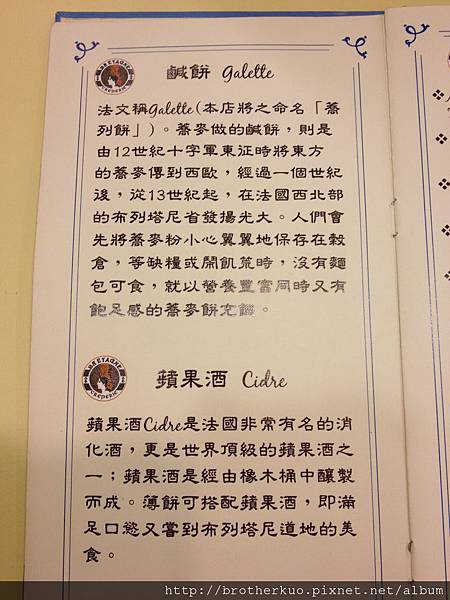 BRETAGNE
CREPERIE
鹹餅 Galette
法文稱Galette(本店將之命名「蕎
列餅」)。蕎麥做的鹹餅，則是
由12世紀十字軍東征時將東方
的蕎麥傳到西歐，經過一個世紀
後，從13世紀起，在法國西北部
的布列塔尼省發揚光大。人們會
先將蕎麥粉小心翼翼地保存在穀
倉，等缺糧或鬧飢荒時，沒有麵
包可食，就以營養豐富同時又有
飽足感的蕎麥餅充饑。
BRETAGNE
CREPERIE
蘋果酒 Cidre
蘋果酒Cidre是法國非常有名的消
化酒，更是世界頂級的蘋果酒之
一；蘋果酒是經由橡木桶中釀製
而成。薄餅可搭配蘋果酒，即滿
足口慾又嘗到布列塔尼道地的美
食。
http://brotherkuo.pixnet.net/album